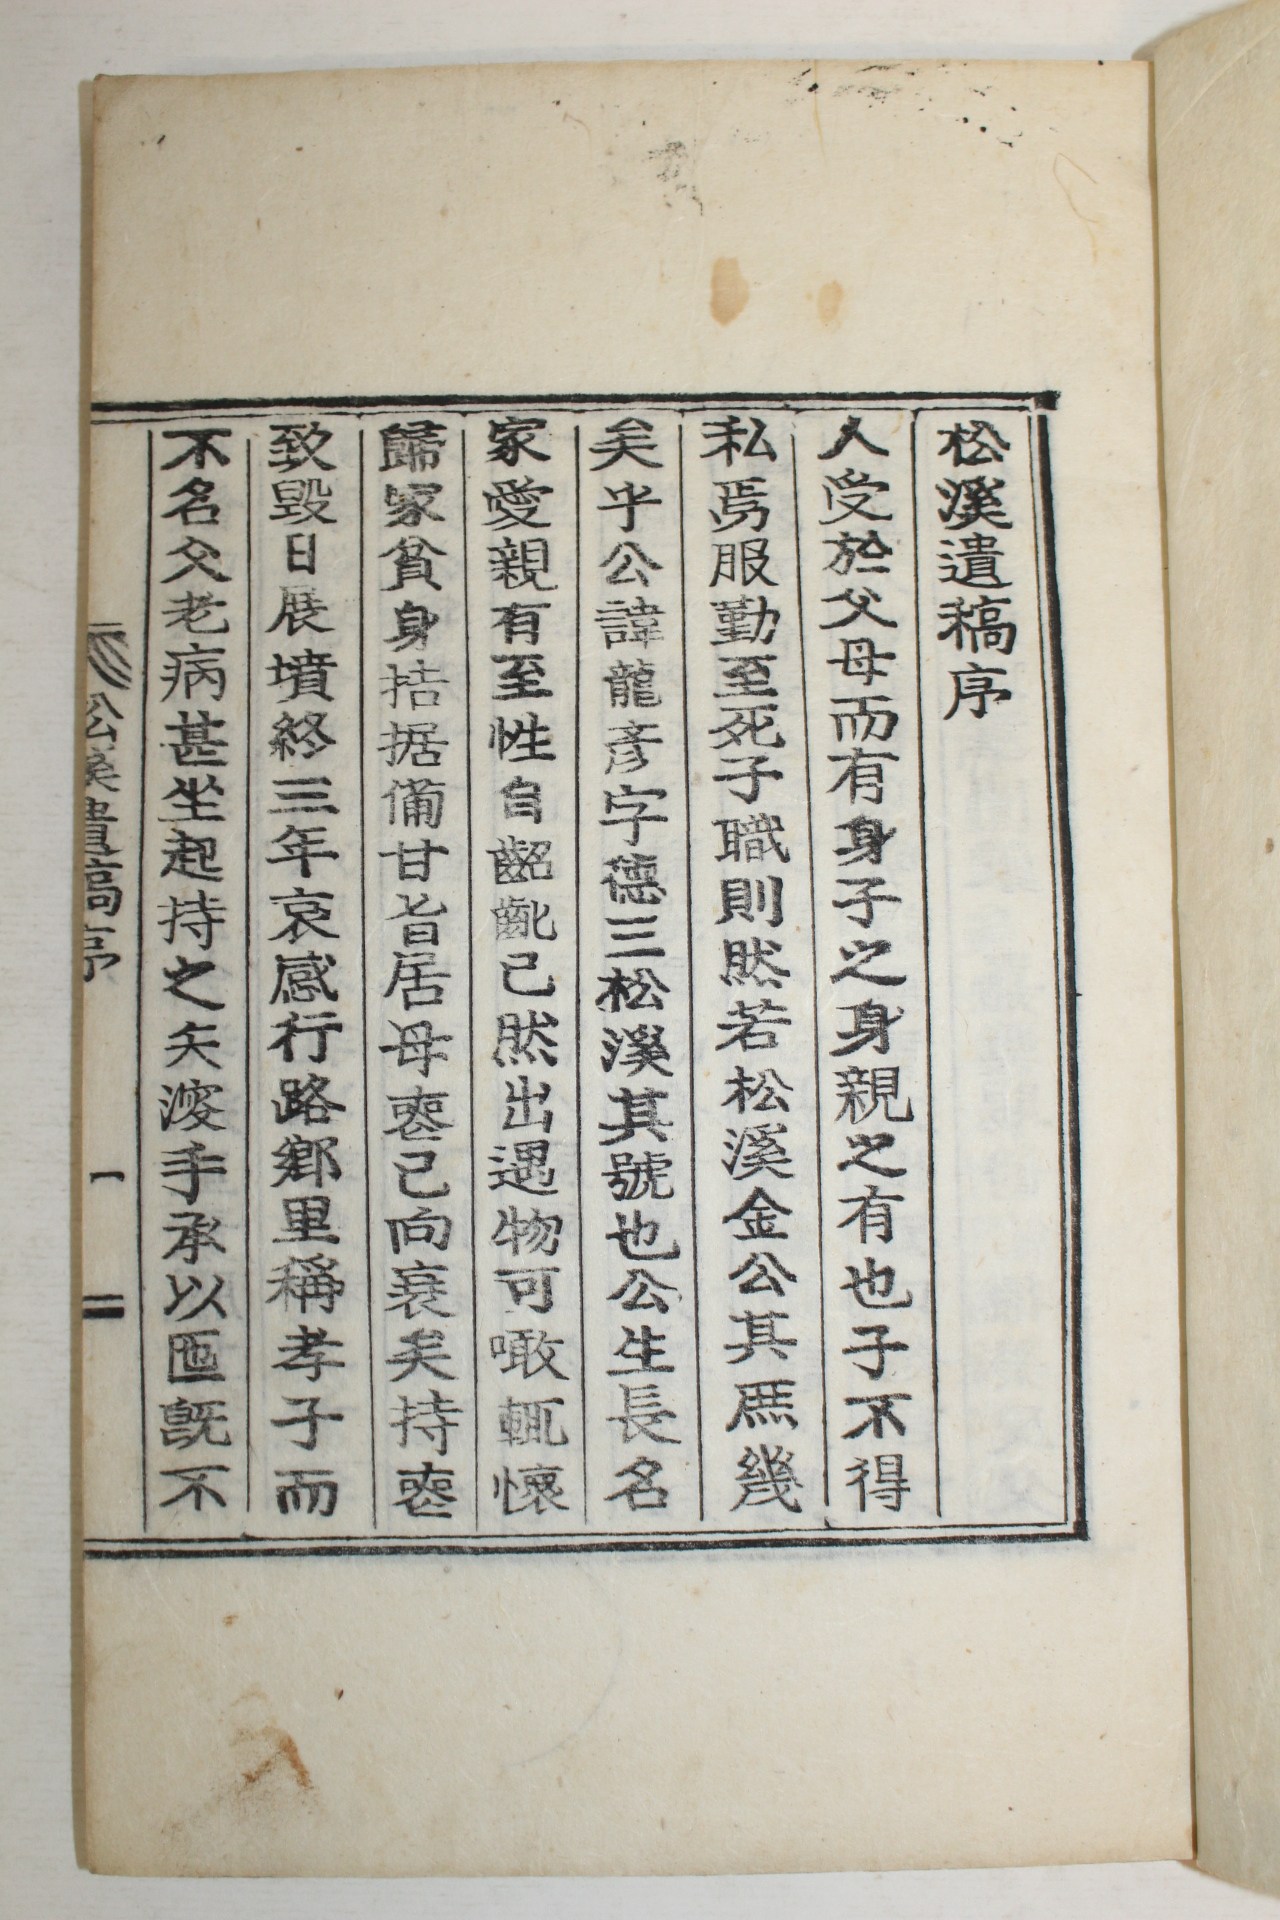 松溪遺稿序
人受於父母而有身子之身親之有也子不得
私焉服勤至死子職則然若松溪金公其庶幾
矣乎公諱龍彦字德三松溪其號也公生長名
家愛親有至性自齠齔已然出遇物可噉輒懷
歸家貧身拮据備甘旨居母喪已向衰矣持喪
致毀日展墳終三年哀感行路鄉里稱孝子而
不名父老病甚坐起持之矢溲手承以匜旣不
松溪遺稿序 一